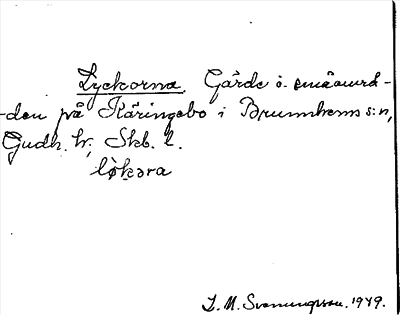 Lyckorna. Gärde o. småområ-
-den på Käringabo i Brunnhems s:n,
Gudh. hr, Skb. l.
lø̀kəra
L. M. Svenungsson. 1949.